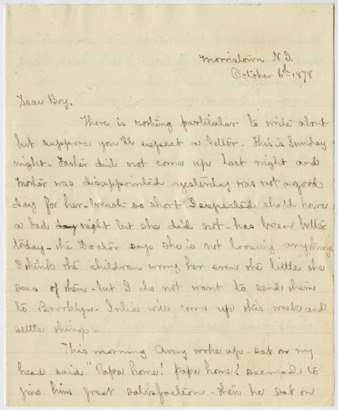 Morristown N.J.
October 6th 1878
Dear Boy.
There is nothing particular to write about
but suppose you'll expect a letter. This is Sunday
night - Father did not come up last night and
Mother was disappointed yesterday was not a good
day for her. breath so short I expected she'd have
a bad night but she did not - has been better
today - the Doctor says she is not loosing anything
I think the children worry her even the little she
sees of them - but I do not want to send them
to Brooklyn. Julia will come up this week and
settle things -
This morning Avery woke up - sat on my
head said "Papa home! papa home! seemed to
give him great satisfaction - then he sat on